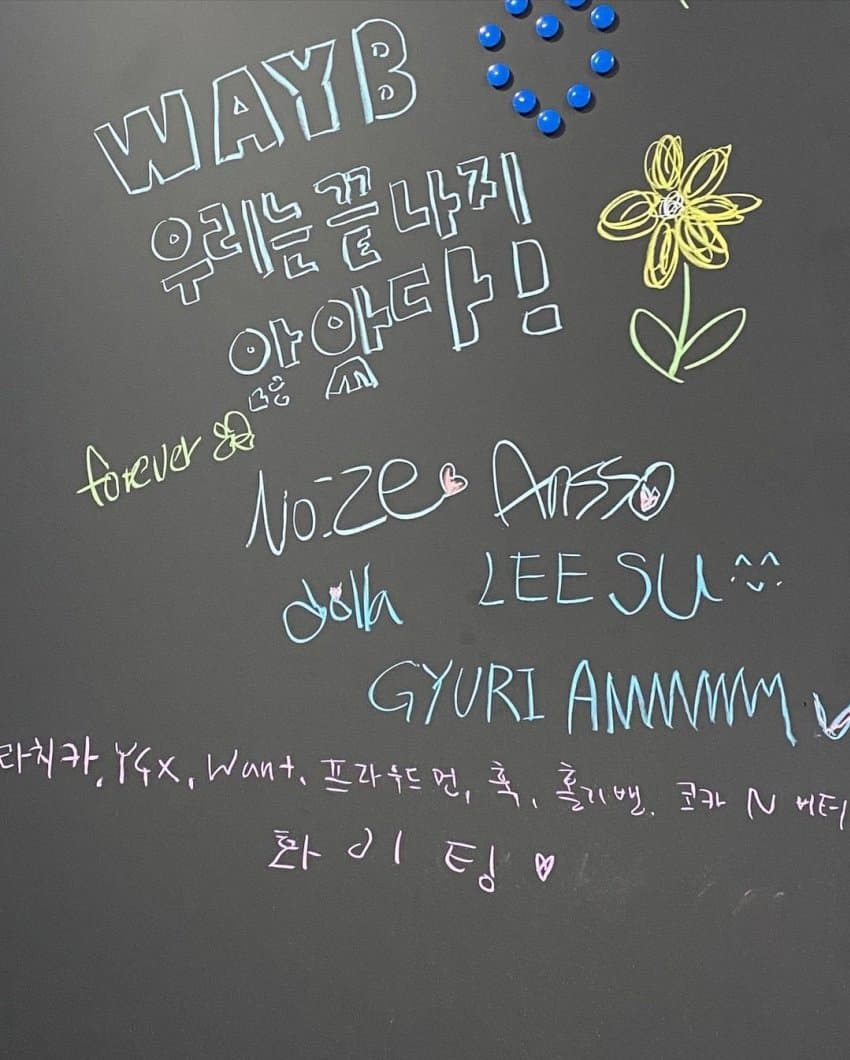 WAYB
우리는 끝나지
않았다!
forever
NO:ZE Ansso
dolla LEE SU
GYURI AMMMMM
라치카, YGX, Want, 프라우드먼, 훅, 홀리뱅, 코카 N 버터
화이팅